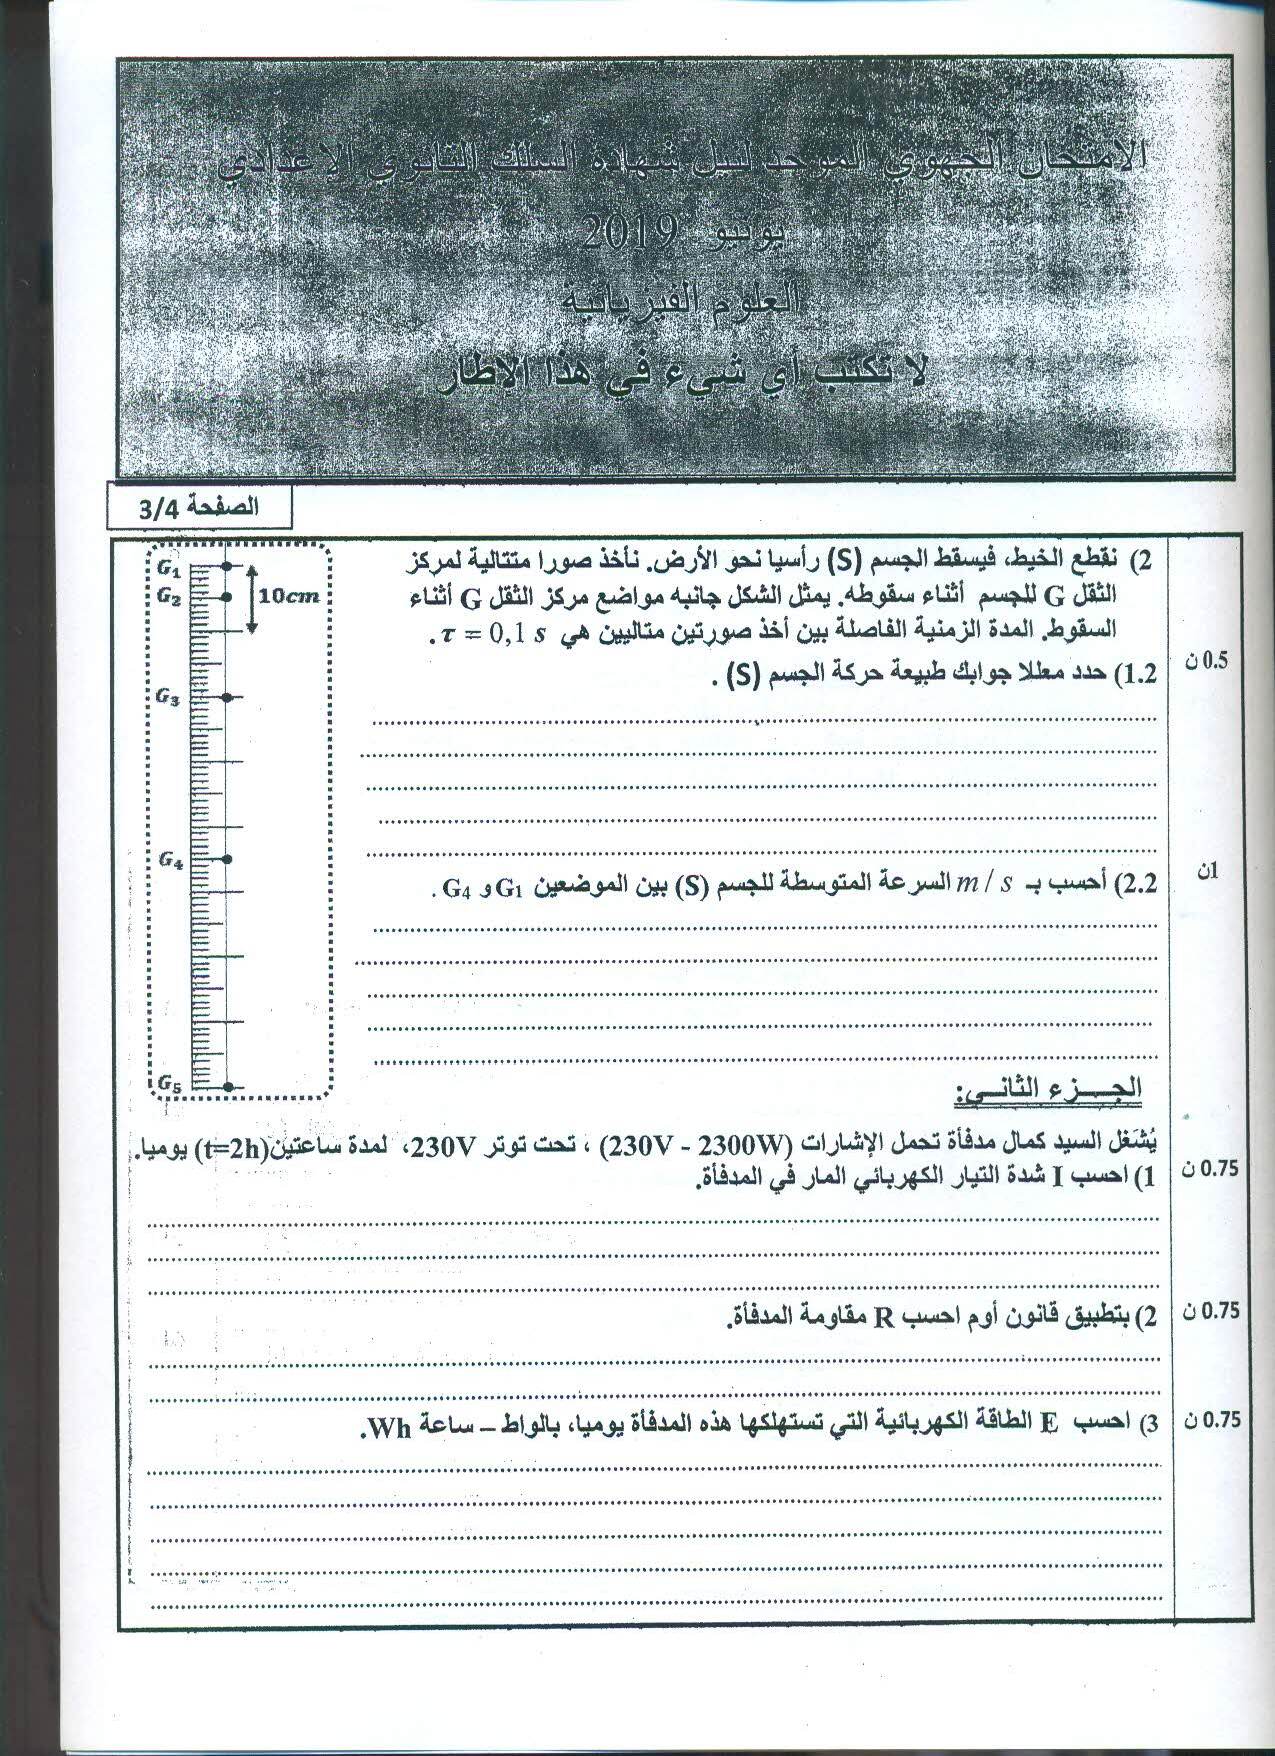 الامتحان الجهوي الموحد لنيل شهادة السلك الثانوي الإعدادي
يونيو 2019
العلوم الفيزيائية
لا تكتب أي شيء في هذا الإطار
الصفحة 3/4
2) نقطع الخيط، فيسقط الجسم (S) رأسيا نحو الأرض. نأخذ صورا متتالية لمركز
الثقل G للجسم أثناء سقوطه. يمثل الشكل جانبه مواضع مركز الثقل G أثناء
السقوط. المدة الزمنية الفاصلة بين أخذ صورتين متتاليين هي τ = 0,1 s .
1.2) حدد معللا جوابك طبيعة حركة الجسم (S) .
0.5 ن
2.2) أحسب بـ m / s السرعة المتوسطة للجسم (S) بين الموضعين G1 و G4 .
1ن
G1
10cm
G2
G3
G4
G5
الجـــزء الثانـــي:
يُشغل السيد كمال مدفأة تحمل الإشارات (230V - 2300W) ، تحت توتر 230V، لمدة ساعتين(t=2h) يوميا.
1) احسب I شدة التيار الكهربائي المار في المدفأة.
0.75 ن
2) بتطبيق قانون أوم احسب R مقاومة المدفأة.
0.75 ن
3) احسب E الطاقة الكهربائية التي تستهلكها هذه المدفأة يوميا، بالواط – ساعة Wh.
0.75 ن